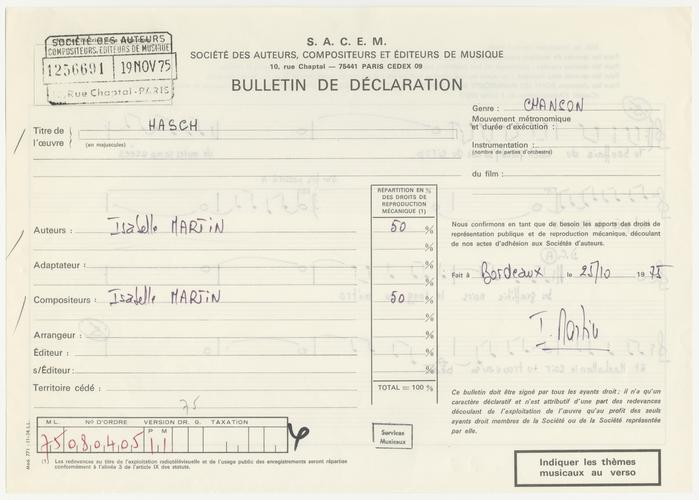 SOCIÉTÉ DES AUTEURS
COMPOSITEURS, EDITEURS DE MUSIQUE
1256691 19 NOV 75
10, Rue Chaptal - PARIS
S. A. C. E. M.
SOCIÉTÉ DES AUTEURS, COMPOSITEURS ET ÉDITEURS DE MUSIQUE
10, rue Chaptal — 75441 PARIS CEDEX 09
BULLETIN DE DÉCLARATION
Titre de l'œuvre
(en majuscules)
HASCH
Genre : CHANSON
Mouvement métronomique
et durée d'exécution :
Instrumentation :
(nombre de parties d'orchestre)
du film :
RÉPARTITION EN %
DES DROITS DE
REPRODUCTION
MÉCANIQUE (1)
Auteurs : Isabelle MARTIN 50 %
%
Adaptateur : %
%
Compositeurs : Isabelle MARTIN 50 %
%
Arrangeur : %
Éditeur : %
s/Éditeur : %
Territoire cédé :
TOTAL = 100 %
Nous confirmons en tant que de besoin les apports des droits de
représentation publique et de reproduction mécanique, découlant
de nos actes d'adhésion aux Sociétés d'auteurs.
Fait à Bordeaux le 25/10 1975
I. Martin
Ce bulletin doit être signé par tous les ayants droit ; il n'a qu'un
caractère déclaratif et n'est attributif d'une part des redevances
découlant de l'exploitation de l'œuvre qu'au profit des seuls
ayants droit membres de la Société ou de la Société représentée
par elle.
75
M L. N° D'ORDRE VERSION DR. G. TAXATION
P M
75 080405 11
(1) Les redevances au titre de l'exploitation radiotélévisuelle et de l'usage public des enregistrements seront réparties
conformément à l'alinéa 3 de l'article IX des statuts.
Services
Musicaux
Indiquer les thèmes
musicaux au verso